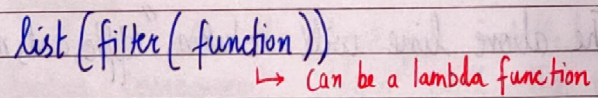 list (filter ( function ))
↳ Can be a lambda function